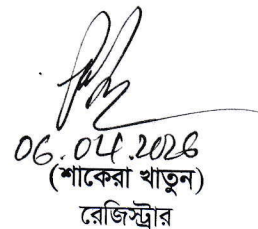 06.04.2026
(শাকেরা খাতুন)
রেজিস্ট্রার